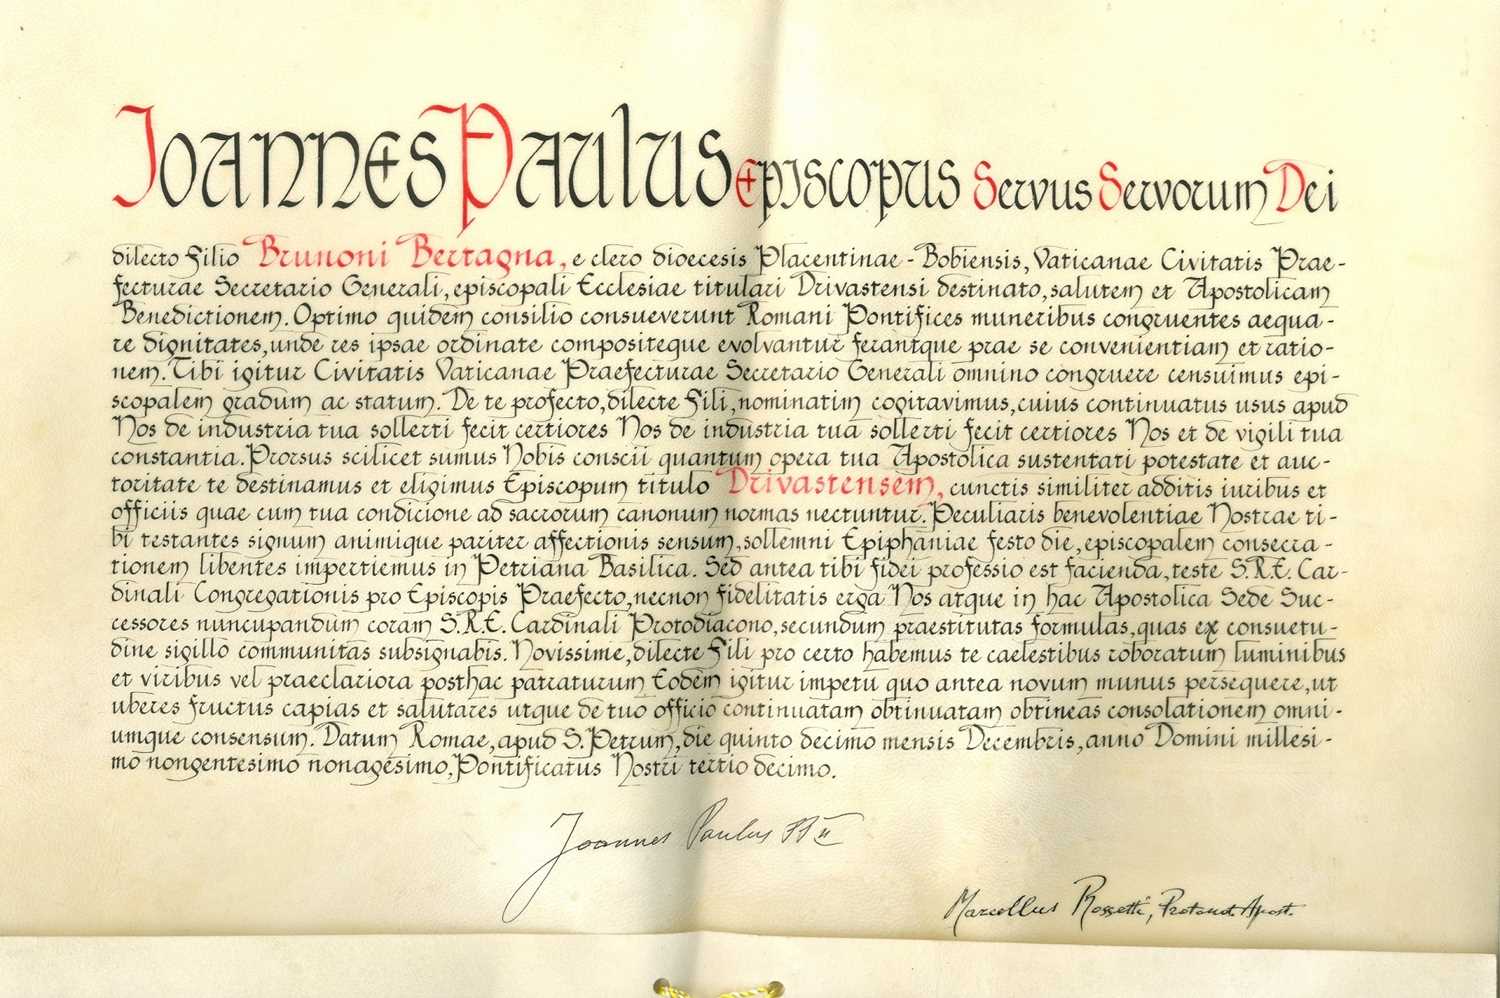 Joannes Paulus Episcopus Servus Servorum Dei
dilecto Filio Brunoni Bertagna, e clero dioecesis Placentinae - Bobiensis, Vaticanae Civitatis Prae-
fecturae Secretario Generali, episcopali Ecclesiae titulari Drivastensi destinato, salutem et Apostolicam
Benedictionem. Optimo quidem consilio consueverunt Romani Pontifices muneribus congruentes aequa-
re dignitates, unde res ipsae ordinate compositeque evolvantur ferantque prae se convenientiam et ratio-
nem. Tibi igitur Civitatis Vaticanae Praefecturae Secretario Generali omnino congruere censuimus epi-
scopalem gradum ac statum. De te profecto, dilecte Fili, nominatim cogitavimus, cuius continuatus usus apud
Nos de industria tua sollerti fecit certiores Nos de industria tua sollerti fecit certiores Nos et de vigili tua
constantia. Prorsus scilicet sumus Nobis conscii quantum opera tua Apostolica sustentati potestate et auc-
toritate te destinamus et eligimus Episcopum titulo Drivastensem, cunctis similiter additis iuribus et
officiis quae cum tua condicione ad sacrorum canonum normas nectuntur. Peculiaris benevolentiae Nostrae ti-
bi testantes signum animique pariter affectionis sensum, sollemni Epiphaniae festo die, episcopalem consecra-
tionem libentes impertiemus in Petriana Basilica. Sed antea tibi fidei professio est facienda, teste S.R.E. Car-
dinali Congregationis pro Episcopis Praefecto, necnon fidelitatis erga Nos atque in hac Apostolica Sede Suc-
cessores nuncupandum coram S.R.E. Cardinali Protodiacono, secundum praestitutas formulas, quas ex consuetu-
dine sigillo communitas subsignabis. Novissime, dilecte Fili pro certo habemus te caelestibus roboratum luminibus
et viribus vel praeclariora posthac patraturum Eodem igitur impetu quo antea novum munus persequere, ut
uberes fructus capias et salutares utque de tuo officio continuatam obtinuatam obtineas consolationem omni-
umque consensum. Datum Romae, apud S. Petrum, die quinto decimo mensis Decembris, anno Domini millesi-
mo nongentesimo nonagesimo, Pontificatus Nostri tertio decimo.
Joannes Paulus PP II
Marcellus Rossetti, Protonot. Apost.